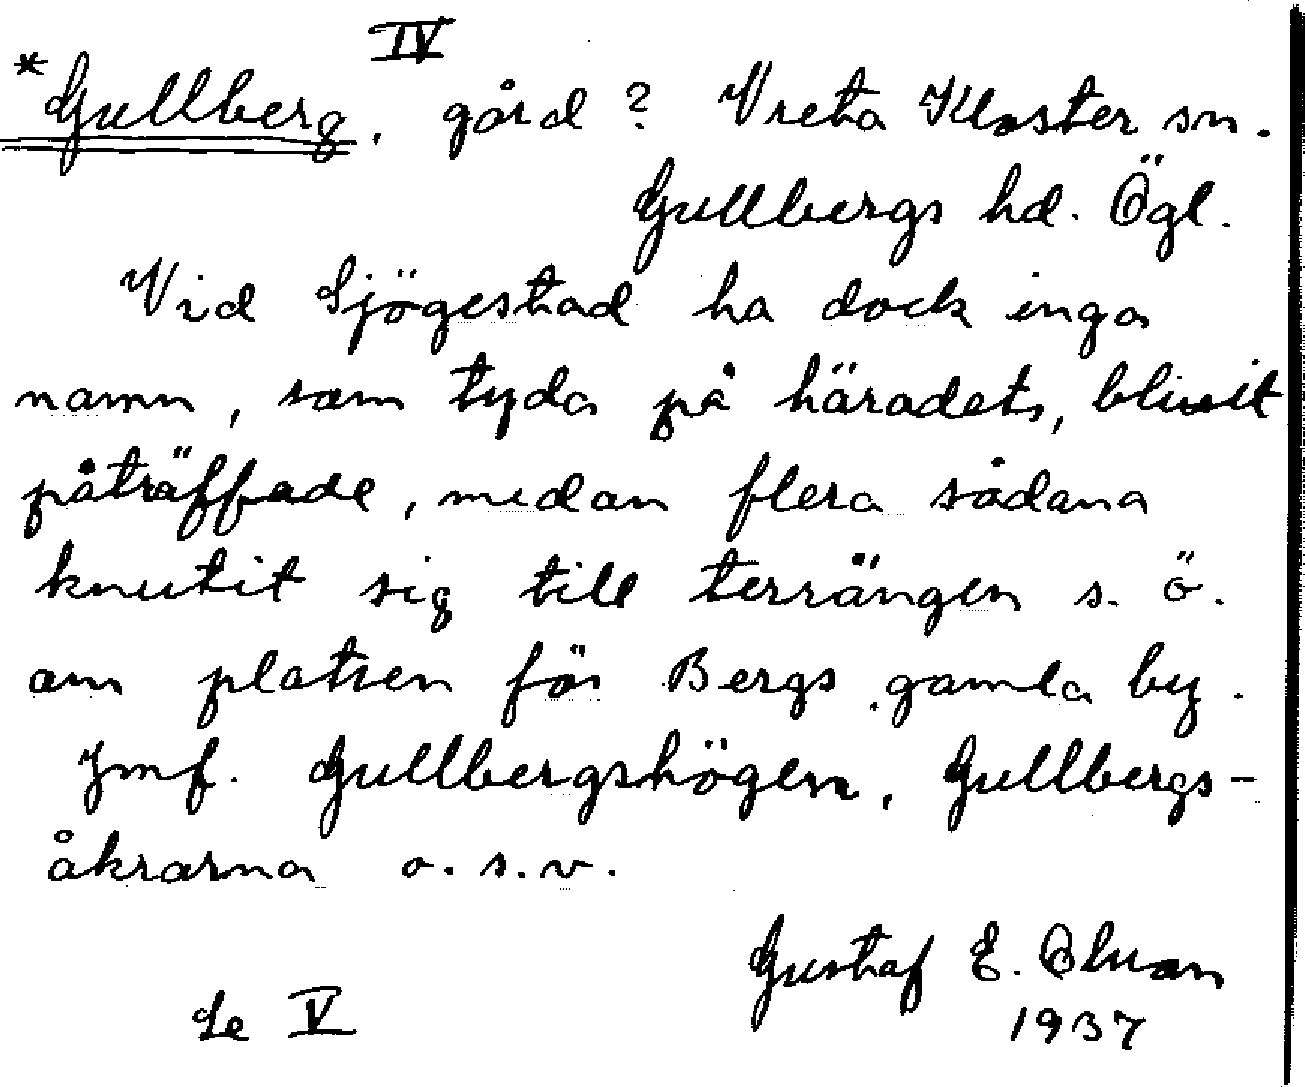 IV
*Gullberg, gård? Vreta Kloster sn.
Gullbergs hd. Ögl.
Vid Sjögestad ha dock inga
namn, som tyda på häradets, blivit
påträffade, medan flera sådana
knutit sig till terrängen s. ö.
om platsen för Bergs gamla by.
Jmf. Gullbergshögen, Gullbergs-
åkrarna o.s.v.
Gustaf E. Olsson
1937
Se V